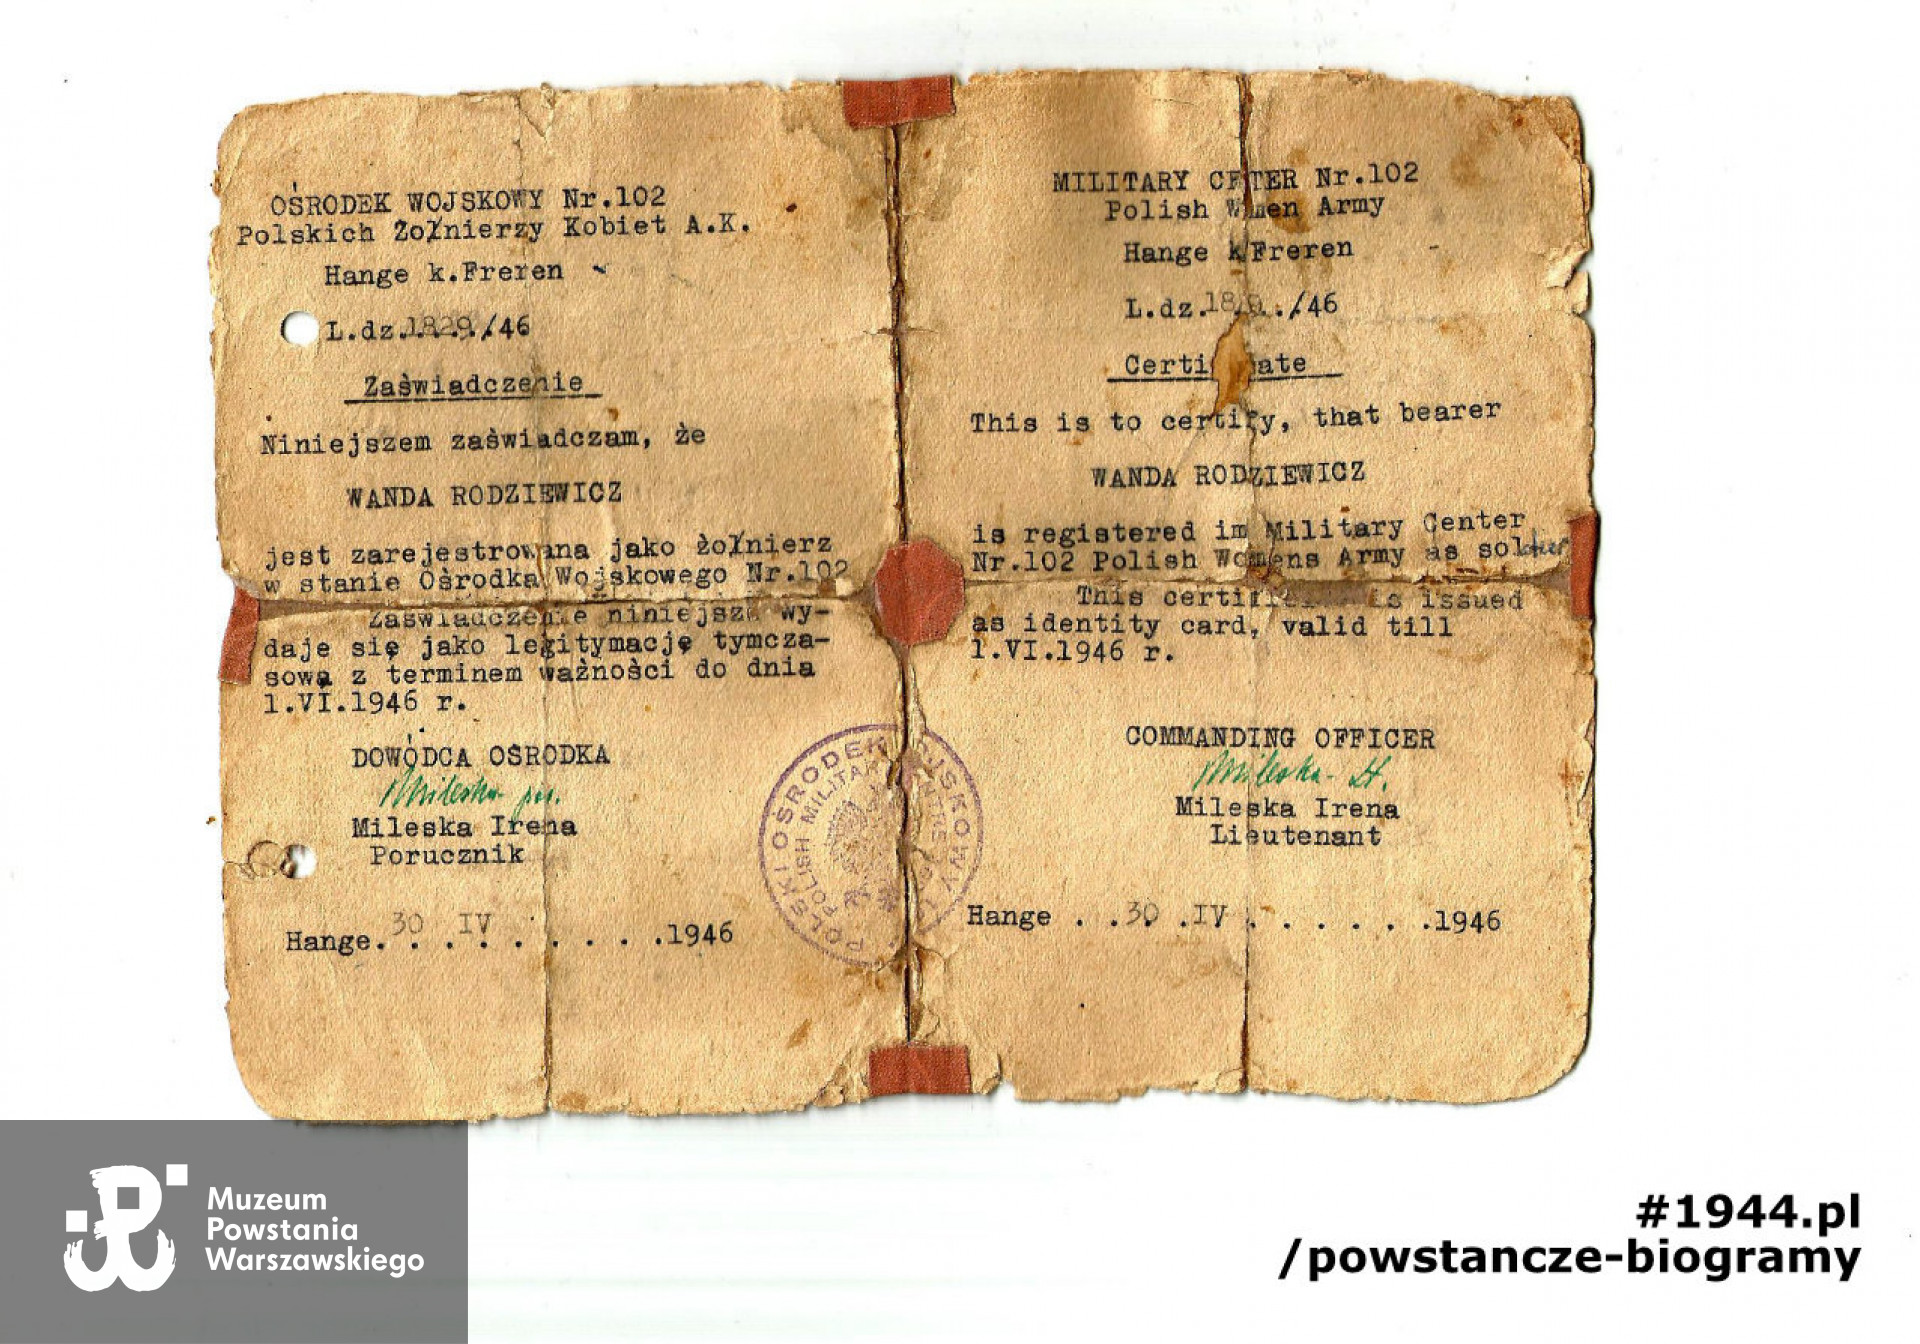 OŚRODEK WOJSKOWY Nr.102
Polskich Żołnierzy Kobiet A.K.
Hange k.Freren
L.dz.1829./46
Zaświadczenie
Niniejszem zaświadczam, że
WANDA RODZIEWICZ
jest zarejestrowana jako żołnierz
w stanie Ośrodka Wojskowego Nr.102
Zaświadczenie niniejsze wy-
daje się jako legitymację tymcza-
sową z terminem ważności do dnia
1.VI.1946 r.
DOWÓDCA OŚRODKA
Mileska por.
Mileska Irena
Porucznik
Hange. 30 IV . . . . .1946
MILITARY CENTER Nr.102
Polish Women Army
Hange k.Freren
L.dz. /46
Certificate
This is to certify, that bearer
WANDA RODZIEWICZ
is registered im Military Center
Nr.102 Polish Womens Army as soldier
This certificate is issued
as identity card, valid till
1.VI.1946 r.
COMMANDING OFFICER
Mileska Lt.
Mileska Irena
Lieutenant
Hange . .30 .IV . . . . . .1946
POLSKI OŚRODEK WOJSKOWY
POLISH MILITARY CENTRE
Muzeum
Powstania
Warszawskiego
#1944.pl
/powstancze-biogramy